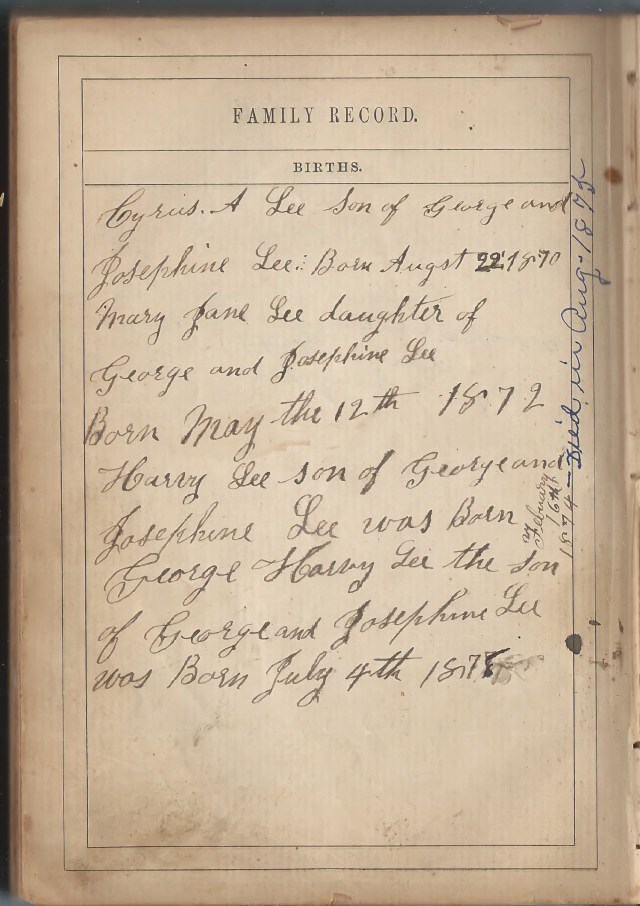 FAMILY RECORD.
BIRTHS.
Cyrius. A Lee son of George and
Josephine Lee: Born Augst 22 1870
Mary Jane Lee daughter of
George and Josephine Lee
Born May the 12th 1872
Harvy Lee son of George and
Josephine Lee was Born
February
16th
1874 - Died in Aug - 1875
George Harvy Lee the son
of George and Josephine Lee
was Born July 4th